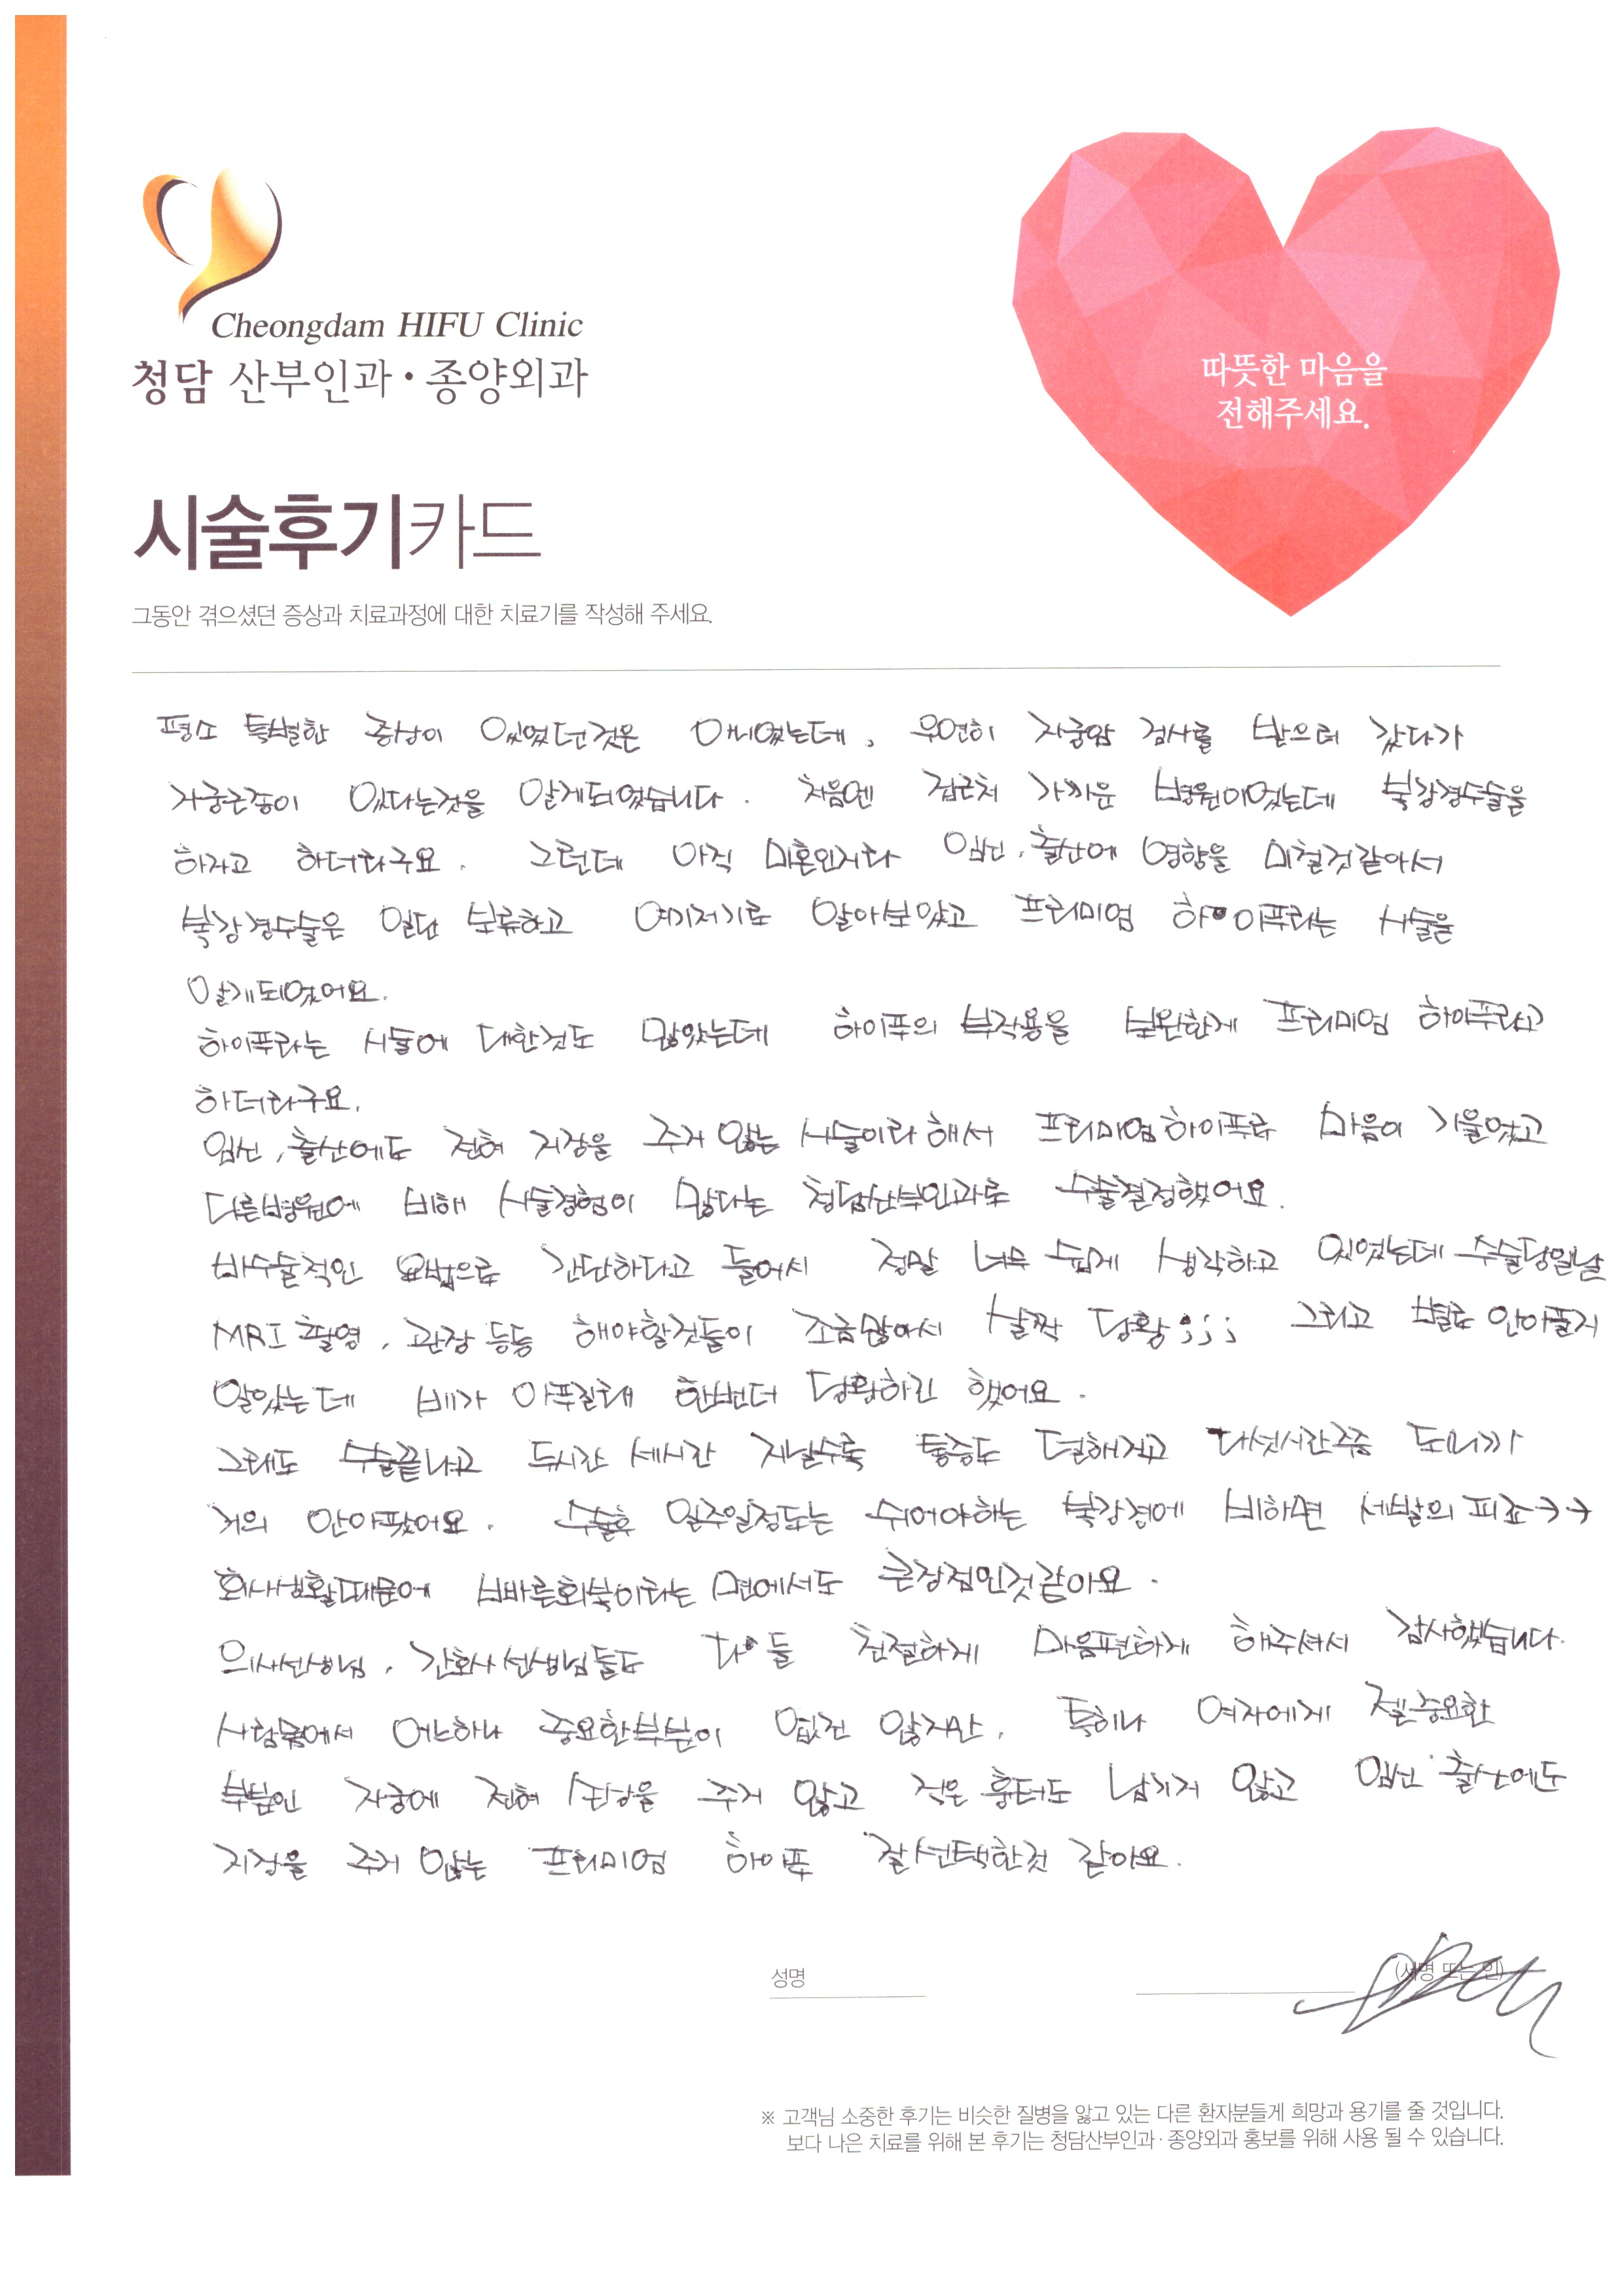 Cheongdam HIFU Clinic
청담 산부인과·종양외과
따뜻한 마음을
전해주세요.
시술후기카드
그동안 겪으셨던 증상과 치료과정에 대한 치료기를 작성해 주세요.
평소 특별한 증상이 있었던것은 아니였는데, 우연히 자궁암 검사를 받으러 갔다가
자궁근종이 있다는것을 알게되었습니다. 처음엔 집근처 가까운 병원이었는데 복강경수술을
하자고 하더라구요. 그런데 아직 미혼인지라 임신, 출산에 영향을 미칠것같아서
복강경수술은 일단 보류하고 여기저기로 알아보았고 프리미엄 하이푸라는 시술을
알게되었어요.
하이푸라는 시술에 대한것도 많았는데 하이푸의 부작용을 보완한게 프리미엄 하이푸라고
하더라구요.
임신, 출산에도 전혀 지장을 주지 않는 시술이라 해서 프리미엄하이푸로 마음이 기울었고
다른병원에 비해 시술경험이 많다는 청담산부인과로 수술결정했어요.
비수술적인 요법으로 간단하다고 들어서 정말 너무 쉽게 생각하고 있었는데 수술당일날
MRI 촬영, 관장 등등 해야할것들이 조금많아서 살짝 당황;;; 그리고 별로 안아플지
알았는데 배가 아푸길래 한번더 당황하긴 했어요.
그래도 수술끝나고 두시간 세시간 지날수록 통증도 덜해지고 다섯시간쯤 되니까
거의 안아팠어요. 수술후 일주일정도는 쉬어야하는 복강경에 비하면 세발의 피죠→→
회사생활때문에 빠른회복이라는 면에서도 큰장점인것같아요.
의사선생님, 간호사선생님들도 다들 친절하게 마음편하게 해주셔서 감사했습니다.
사람몸에서 어느하나 중요한부분이 없진 않지만, 특히나 여자에게 젤중요한
부분인 자궁에 전혀 손상을 주지 않고 적은 흉터도 남기지 않고 임신·출산에도
지장을 주지 않는 프리미엄 하이푸 잘선택한것 같아요.
성명 (서명 또는 인)
※ 고객님 소중한 후기는 비슷한 질병을 앓고 있는 다른 환자분들게 희망과 용기를 줄 것입니다.
보다 나은 치료를 위해 본 후기는 청담산부인과·종양외과 홍보를 위해 사용 될 수 있습니다.